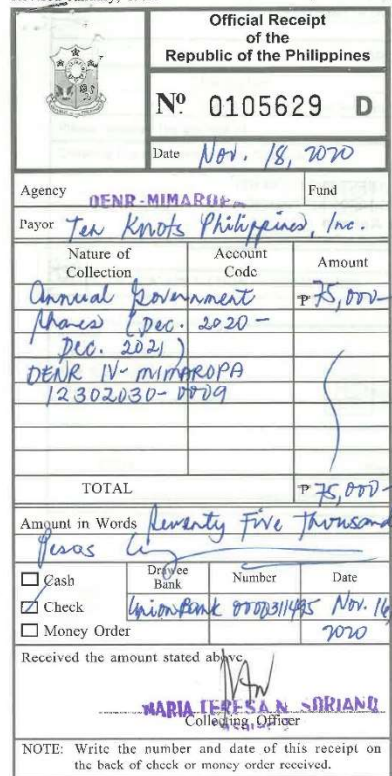 Official Receipt
of the
Republic of the Philippines
Nº 0105629 D
Date Nov. 18, 2020
Agency DENR-MIMAROPA Fund
Payor Ten Knots Philippines, Inc.
Nature of Collection Account Code Amount
Annual Government ₱ 75,000-
shares (Dec. 2020 -
Dec. 2021)
DENR IV- MIMAROPA
12302030-0009
TOTAL ₱ 75,000-
Amount in Words Seventy Five Thousand
Pesos
Cash Drawee Bank Number Date
Check Union Bank 0000311495 Nov. 16,
Money Order 2020
Received the amount stated above.
MARIA TERESA N. SORIANO
Collecting Officer
NOTE: Write the number and date of this receipt on
the back of check or money order received.